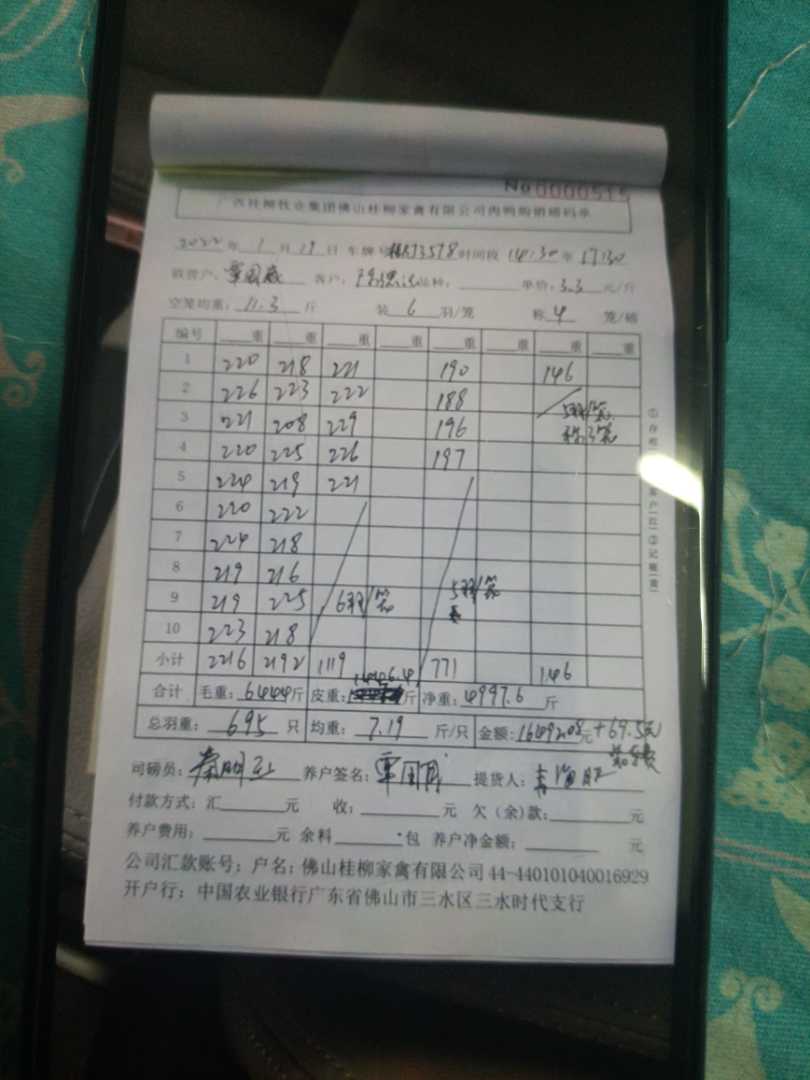 No 0000515
广西桂柳牧业集团佛山桂柳家禽有限公司肉鸭购销磅码单
2022年 1 月 19 日 车牌号 73578 时间段 14:30 至 17:30
客户: 品种: 单价: 3.3 元/斤
空笼均重: 11.3 斤 装 6 羽/笼 称 4 笼/磅
编号 重 重 重 重 重 重 重 重
1 220 218 221 190 146
2 226 223 222 188 5羽/笼
3 221 208 229 196 称3笼
4 220 225 226 197
5 224 219 221
6 220 222
7 224 218
8 219 216
9 219 225 6羽/笼 5羽/笼
10 223 218
小计 2216 2192 1119 771 146
1446.4
合计 毛重: 6444斤 皮重: 斤 净重: 4997.6 斤
总羽重: 695 只 均重: 7.19 斤/只 金额: 16492.08元 +69.5元
司磅员: 养户签名: 提货人:
付款方式: 汇 元 收: 元 欠(余)款: 元
养户费用: 元 余料 包 养户净金额: 元
公司汇款账号: 户名: 佛山桂柳家禽有限公司 44-440101040016929
开户行: 中国农业银行广东省佛山市三水区三水时代支行